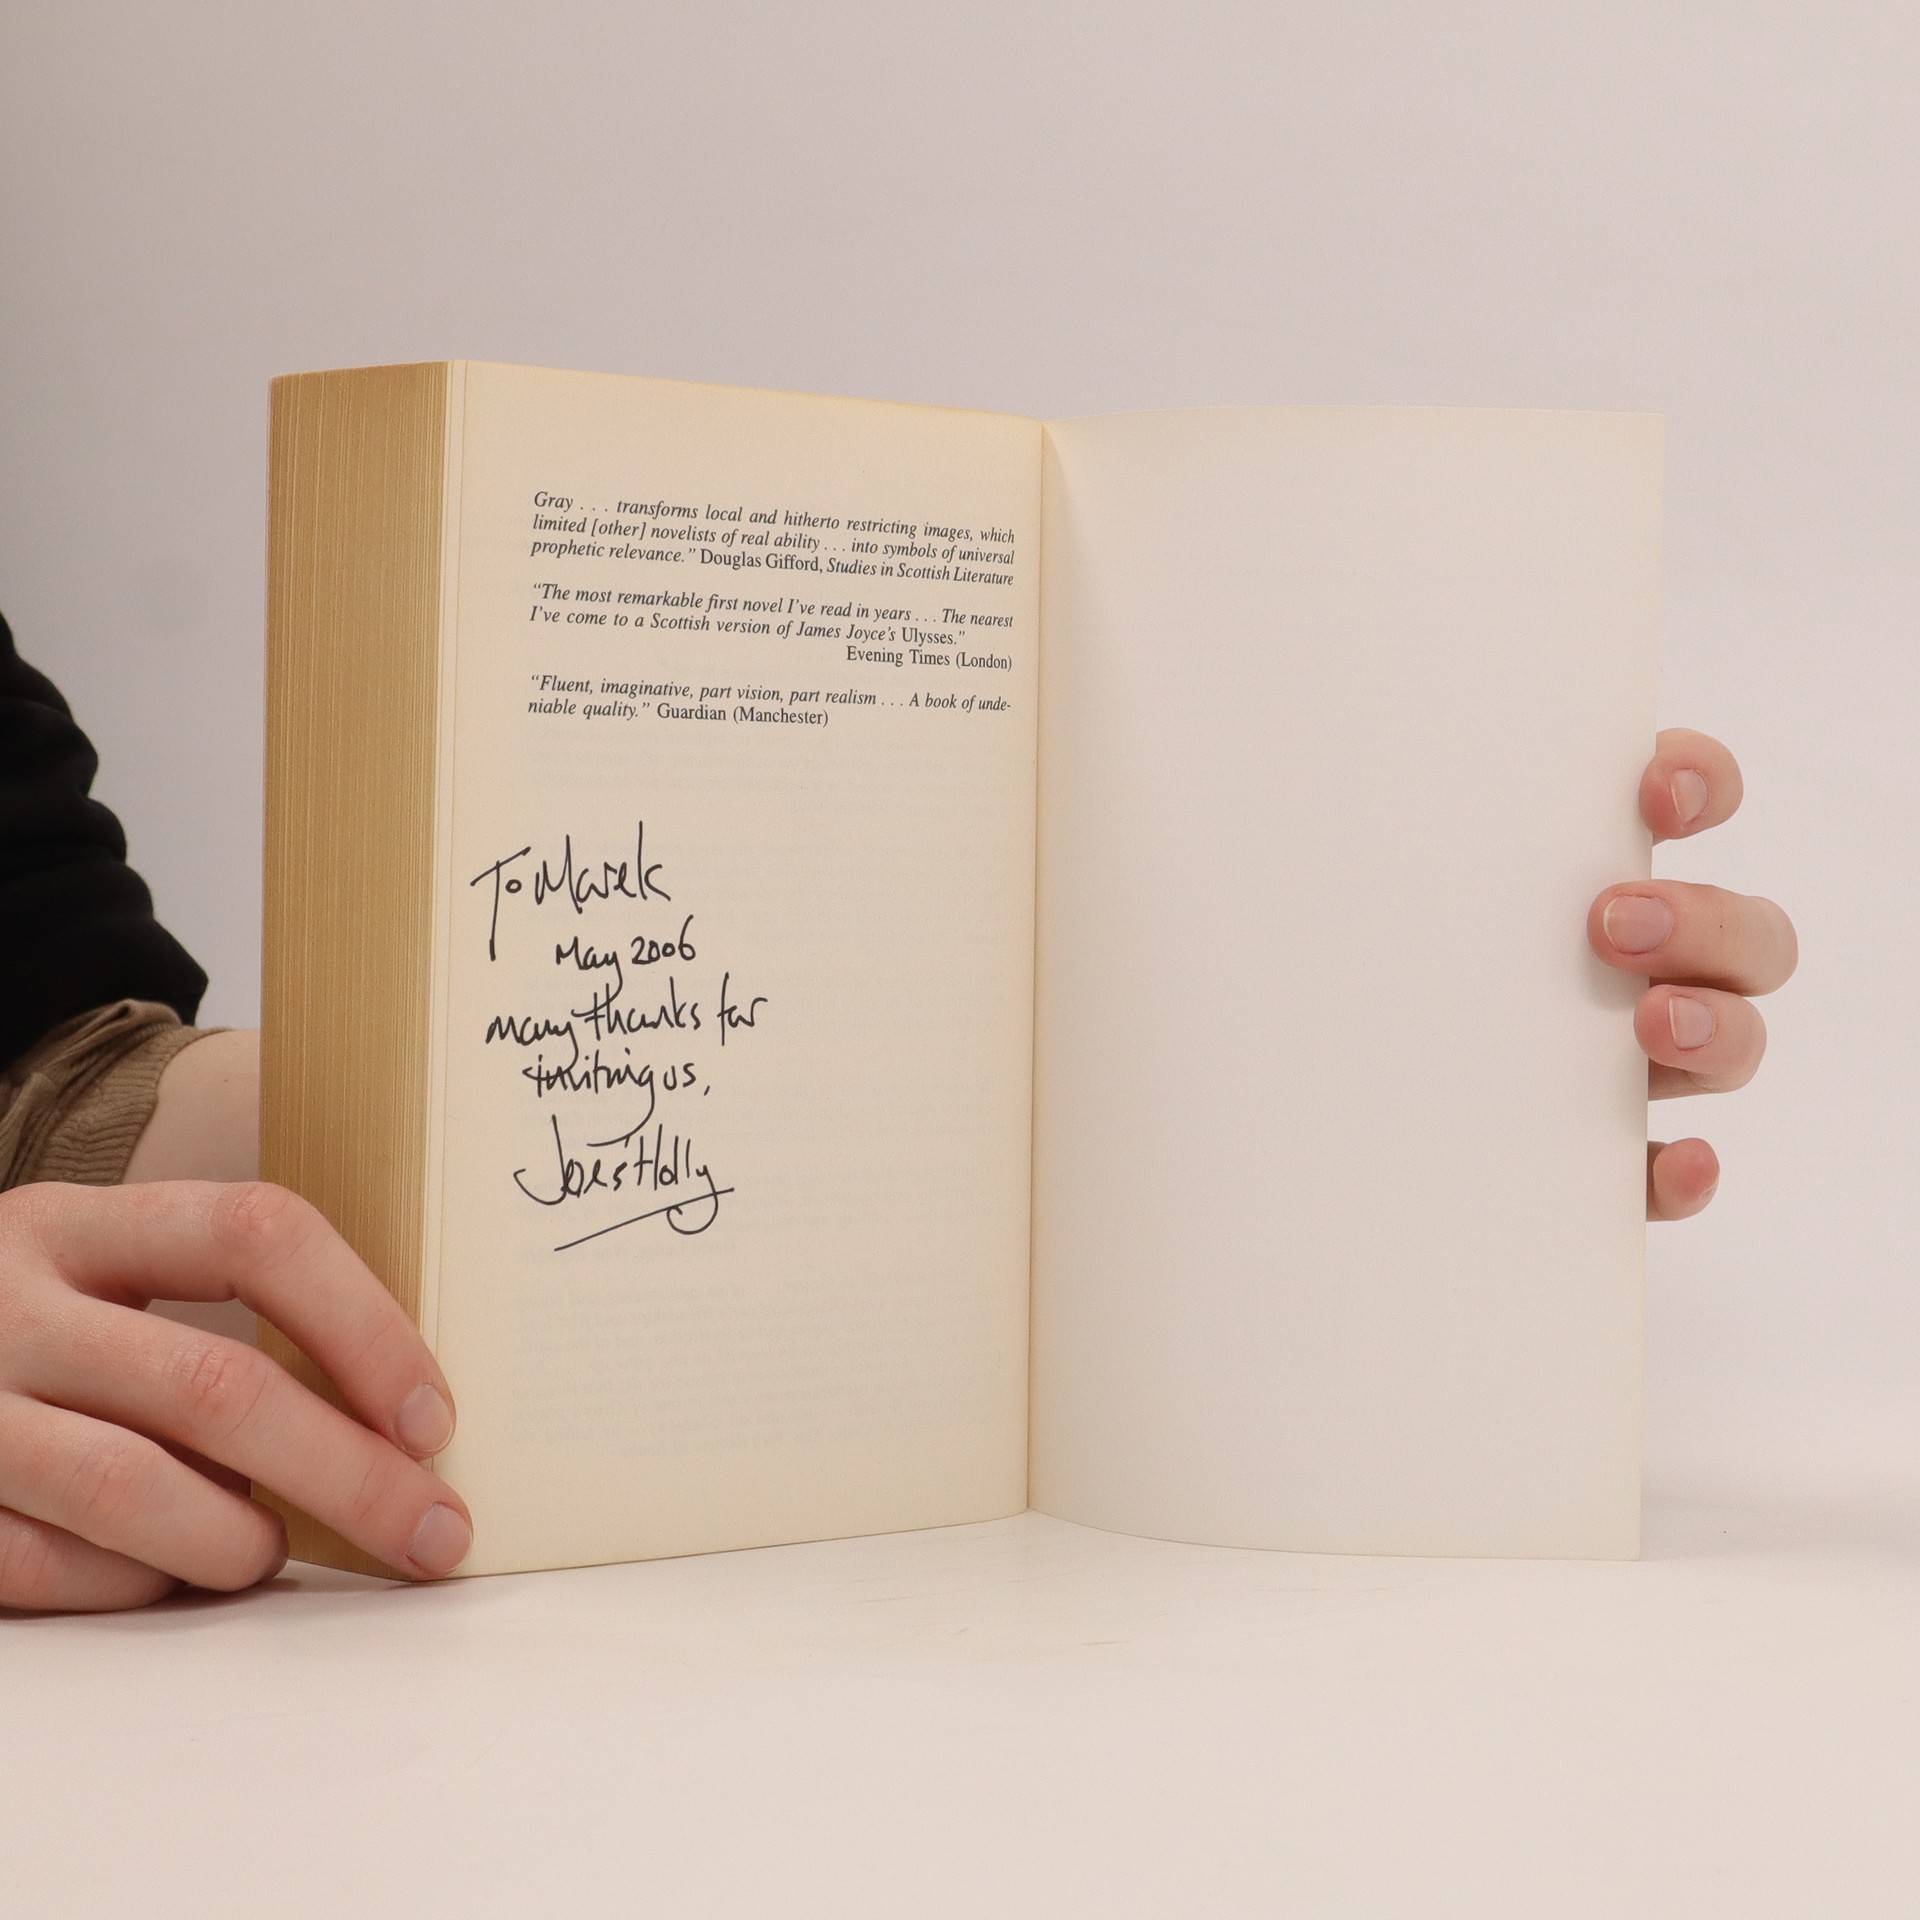 Gray . . . transforms local and hitherto restricting images, which
limited [other] novelists of real ability . . . into symbols of universal
prophetic relevance." Douglas Gifford, Studies in Scottish Literature
"The most remarkable first novel I've read in years . . . The nearest
I've come to a Scottish version of James Joyce's Ulysses."
Evening Times (London)
"Fluent, imaginative, part vision, part realism . . . A book of unde-
niable quality." Guardian (Manchester)
To Marek
May 2006
many thanks for
inviting us,
Holly